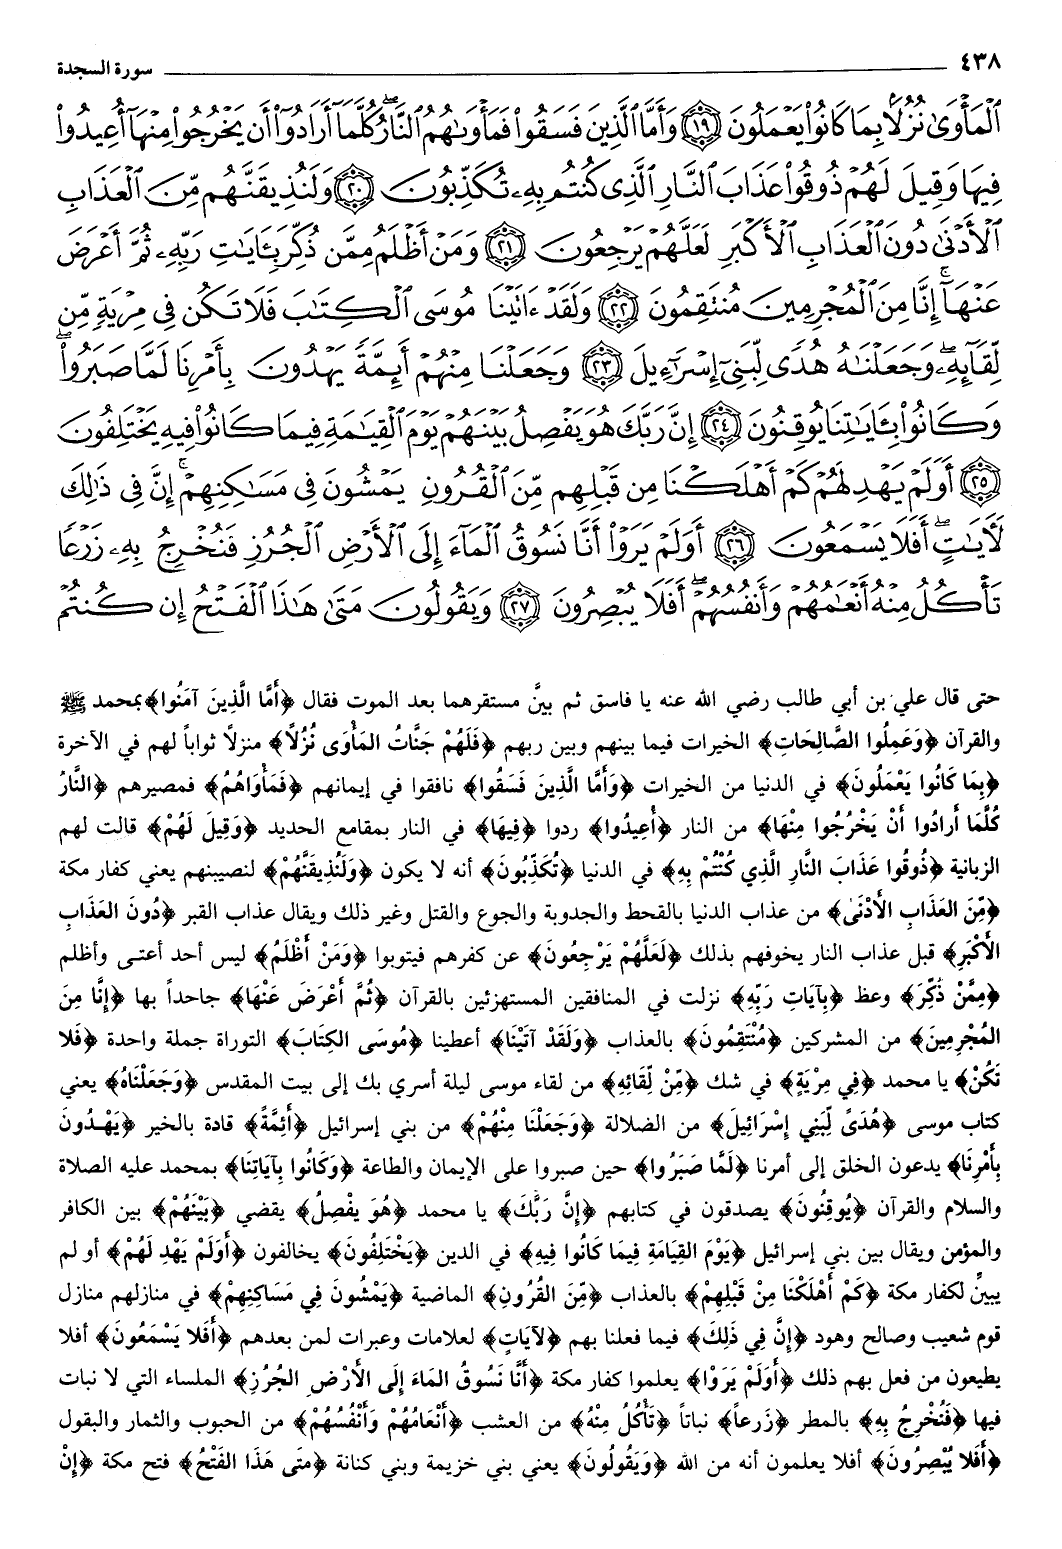 ٤٣٨ سورة السجدة
ٱلْمَأْوَىٰ نُزُلًۢا بِمَا كَانُوا۟ يَعْمَلُونَ ١٩ وَأَمَّا ٱلَّذِينَ فَسَقُوا۟ فَمَأْوَىٰهُمُ ٱلنَّارُ ۖ كُلَّمَآ أَرَادُوٓا۟ أَن يَخْرُجُوا۟ مِنْهَآ أُعِيدُوا۟
فِيهَا وَقِيلَ لَهُمْ ذُوقُوا۟ عَذَابَ ٱلنَّارِ ٱلَّذِى كُنتُم بِهِۦ تُكَذِّبُونَ ٢٠ وَلَنُذِيقَنَّهُم مِّنَ ٱلْعَذَابِ
ٱلْأَدْنَىٰ دُونَ ٱلْعَذَابِ ٱلْأَكْبَرِ لَعَلَّهُمْ يَرْجِعُونَ ٢١ وَمَنْ أَظْلَمُ مِمَّن ذُكِّرَ بِـَٔايَٰتِ رَبِّهِۦ ثُمَّ أَعْرَضَ
عَنْهَآ ۚ إِنَّا مِنَ ٱلْمُجْرِمِينَ مُنتَقِمُونَ ٢٢ وَلَقَدْ ءَاتَيْنَا مُوسَى ٱلْكِتَٰبَ فَلَا تَكُن فِى مِرْيَةٍ مِّن
لِّقَآئِهِۦ ۖ وَجَعَلْنَٰهُ هُدًى لِّبَنِىٓ إِسْرَٰٓءِيلَ ٢٣ وَجَعَلْنَا مِنْهُمْ أَئِمَّةً يَهْدُونَ بِأَمْرِنَا لَمَّا صَبَرُوا۟ ۖ
وَكَانُوا۟ بِـَٔايَٰتِنَا يُوقِنُونَ ٢٤ إِنَّ رَبَّكَ هُوَ يَفْصِلُ بَيْنَهُمْ يَوْمَ ٱلْقِيَٰمَةِ فِيمَا كَانُوا۟ فِيهِ يَخْتَلِفُونَ
٢٥ أَوَلَمْ يَهْدِ لَهُمْ كَمْ أَهْلَكْنَا مِن قَبْلِهِم مِّنَ ٱلْقُرُونِ يَمْشُونَ فِى مَسَٰكِنِهِمْ ۚ إِنَّ فِى ذَٰلِكَ
لَـَٔايَٰتٍ ۖ أَفَلَا يَسْمَعُونَ ٢٦ أَوَلَمْ يَرَوْا۟ أَنَّا نَسُوقُ ٱلْمَآءَ إِلَى ٱلْأَرْضِ ٱلْجُرُزِ فَنُخْرِجُ بِهِۦ زَرْعًا
تَأْكُلُ مِنْهُ أَنْعَٰمُهُمْ وَأَنفُسُهُمْ ۖ أَفَلَا يُبْصِرُونَ ٢٧ وَيَقُولُونَ مَتَىٰ هَٰذَا ٱلْفَتْحُ إِن كُنتُمْ
حتى قال علي بن أبي طالب رضي الله عنه يا فاسق ثم بيَّن مستقرهما بعد الموت فقال ﴿أَمَّا الَّذِينَ آمَنُوا﴾ بمحمد ﷺ
والقرآن ﴿وَعَمِلُوا الصَّالِحَاتِ﴾ الخيرات فيما بينهم وبين ربهم ﴿فَلَهُمْ جَنَّاتُ المَأْوَى نُزُلًا﴾ منزلاً ثواباً لهم في الآخرة
﴿بِمَا كَانُوا يَعْمَلُونَ﴾ في الدنيا من الخيرات ﴿وَأَمَّا الَّذِينَ فَسَقُوا﴾ نافقوا في إيمانهم ﴿فَمَأْوَاهُمُ﴾ فمصيرهم ﴿النَّارُ
كُلَّمَا أَرادُوا أَنْ يَخْرُجُوا مِنْهَا﴾ من النار ﴿أُعِيدُوا﴾ ردوا ﴿فِيهَا﴾ في النار بمقامع الحديد ﴿وَقِيلَ لَهُمْ﴾ قالت لهم
الزبانية ﴿ذُوقُوا عَذَابَ النَّارِ الَّذِي كُنْتُمْ بِهِ﴾ في الدنيا ﴿تُكَذِّبُونَ﴾ أنه لا يكون ﴿وَلَنُذِيقَنَّهُمْ﴾ لنصيبنهم يعني كفار مكة
﴿مِّنَ العَذَابِ الأَدْنَىٰ﴾ من عذاب الدنيا بالقحط والجدوبة والجوع والقتل وغير ذلك ويقال عذاب القبر ﴿دُونَ العَذَابِ
الأَكْبَرِ﴾ قبل عذاب النار يخوفهم بذلك ﴿لَعَلَّهُمْ يَرْجِعُونَ﴾ عن كفرهم فيتوبوا ﴿وَمَنْ أَظْلَمُ﴾ ليس أحد أعتى وأظلم
﴿مِمَّنْ ذُكِّرَ﴾ وعظ ﴿بِآيَاتِ رَبِّهِ﴾ نزلت في المنافقين المستهزئين بالقرآن ﴿ثُمَّ أَعْرَضَ عَنْهَا﴾ جاحداً بها ﴿إِنَّا مِنَ
المُجْرِمِينَ﴾ من المشركين ﴿مُنْتَقِمُونَ﴾ بالعذاب ﴿وَلَقَدْ آتَيْنَا﴾ أعطينا ﴿مُوسَى الكِتَابَ﴾ التوراة جملة واحدة ﴿فَلا
تَكُنْ﴾ يا محمد ﴿فِي مِرْيَةٍ﴾ في شك ﴿مِّنْ لِّقَائِهِ﴾ من لقاء موسى ليلة أسري بك إلى بيت المقدس ﴿وَجَعَلْنَاهُ﴾ يعني
كتاب موسى ﴿هُدَىً لِّبَنِي إِسْرَائِيلَ﴾ من الضلالة ﴿وَجَعَلْنَا مِنْهُمْ﴾ من بني إسرائيل ﴿أَئِمَّةً﴾ قادة بالخير ﴿يَهْدُونَ
بِأَمْرِنَا﴾ يدعون الخلق إلى أمرنا ﴿لَمَّا صَبَرُوا﴾ حين صبروا على الإيمان والطاعة ﴿وَكَانُوا بِآيَاتِنَا﴾ بمحمد عليه الصلاة
والسلام والقرآن ﴿يُوقِنُونَ﴾ يصدقون في كتابهم ﴿إِنَّ رَبَّكَ﴾ يا محمد ﴿هُوَ يفْصِلُ﴾ يقضي ﴿بَيْنَهُمْ﴾ بين الكافر
والمؤمن ويقال بين بني إسرائيل ﴿يَوْمَ القِيَامَةِ فِيمَا كَانُوا فِيهِ﴾ في الدين ﴿يَخْتَلِفُونَ﴾ يخالفون ﴿أَوَلَمْ يَهْدِ لَهُمْ﴾ أو لم
يبيِّن لكفار مكة ﴿كَمْ أَهْلَكْنَا مِنْ قَبْلِهِمْ﴾ بالعذاب ﴿مِّنَ القُرُونِ﴾ الماضية ﴿يَمْشُونَ فِي مَسَاكِنِهِمْ﴾ في منازلهم منازل
قوم شعيب وصالح وهود ﴿إِنَّ فِي ذَلِكَ﴾ فيما فعلنا بهم ﴿لآيَاتٍ﴾ لعلامات وعبرات لمن بعدهم ﴿أَفَلا يَسْمَعُونَ﴾ أفلا
يطيعون من فعل بهم ذلك ﴿أَوَلَمْ يَرَوْا﴾ يعلموا كفار مكة ﴿أَنَّا نَسُوقُ المَاءَ إِلَى الأَرْضِ الجُرُزِ﴾ الملساء التي لا نبات
فيها ﴿فَنُخْرِجُ بِهِ﴾ بالمطر ﴿زَرعاً﴾ نباتاً ﴿تَأْكُلُ مِنْهُ﴾ من العشب ﴿أَنْعَامُهُمْ وَأَنْفُسُهُمْ﴾ من الحبوب والثمار والبقول
﴿أَفَلا يُبْصِرُونَ﴾ أفلا يعلمون أنه من الله ﴿وَيَقُولُونَ﴾ يعني بني خزيمة وبني كنانة ﴿مَتَى هَذَا الفَتْحُ﴾ فتح مكة ﴿إِنْ